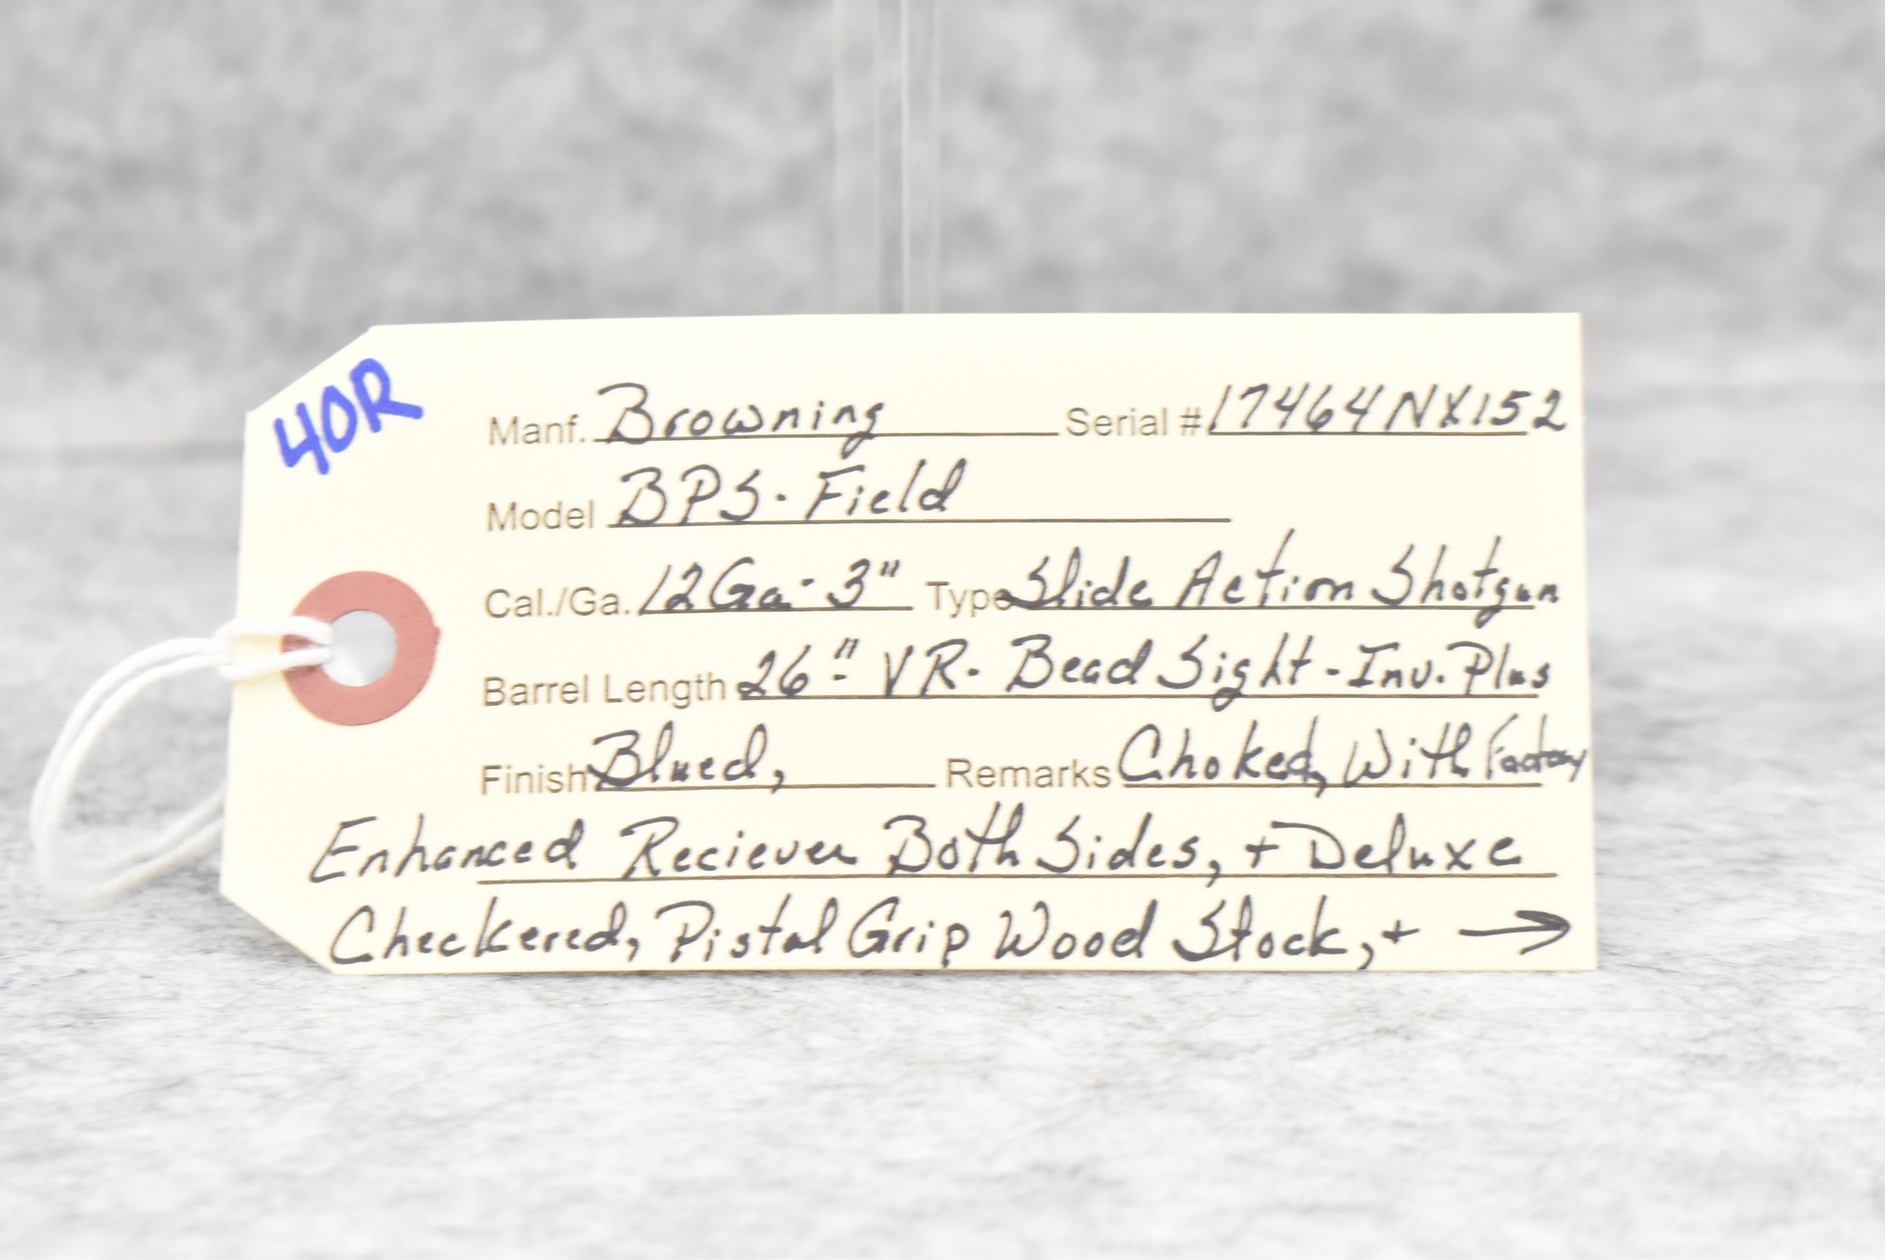 40R
Manf. Browning Serial # 17464NX152
Model BPS - Field
Cal./Ga. 12Ga - 3" Type Slide Action Shotgun
Barrel Length 26" - VR - Bead Sight - Inv. Plus
Finish Blued, Remarks Choked, With Factory
Enhanced Reciever Both Sides, + Deluxe
Checkered, Pistal Grip Wood Stock, + →